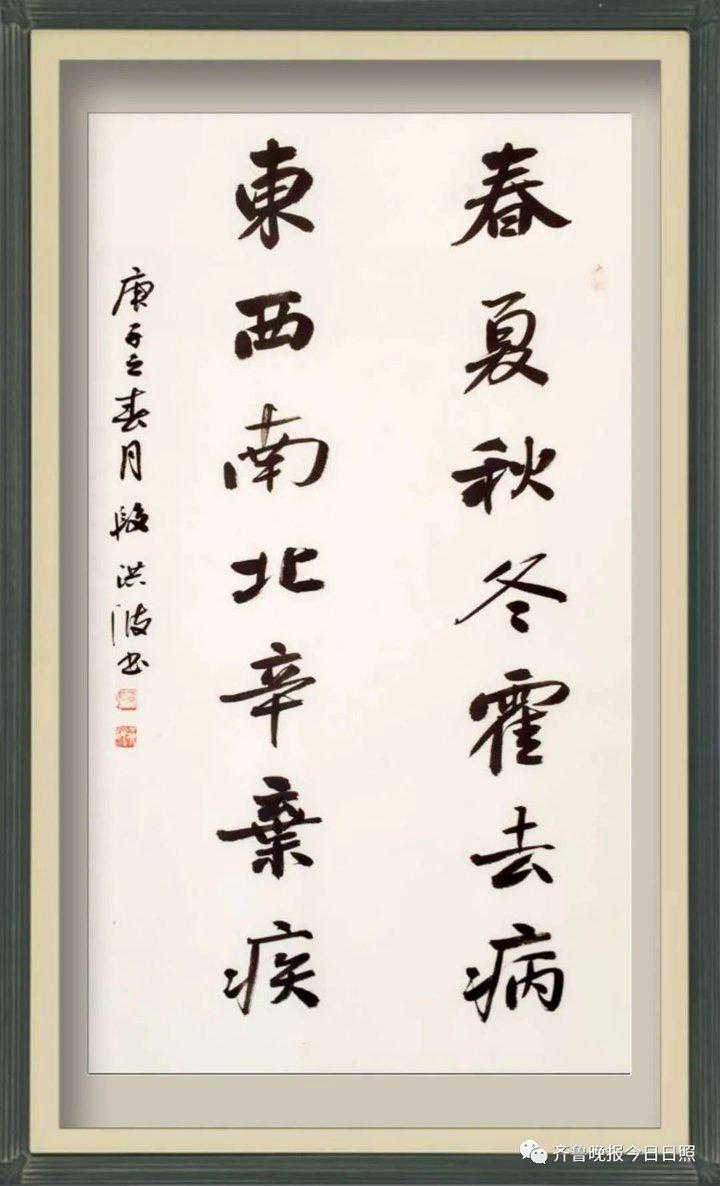 春夏秋冬霍去病
東西南北辛棄疾
庚子之春月殷洪波书
齐鲁晚报今日日照